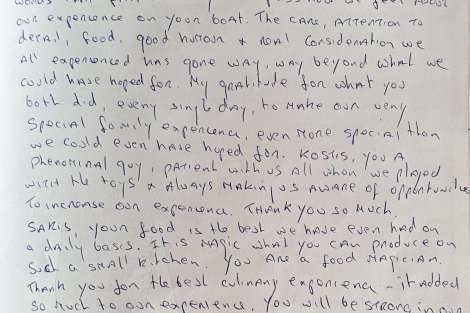 our experience on your boat. The care, attention to
detail, food, good humour & real consideration we
all experienced has gone way, way beyond what we
could have hoped for. My gratitude for what you
both did, every single day, to make our very
special family experience, even more special than
we could even have hoped for. Kostis, you a
phenominal guy, patient with us all when we played
with the toys & always making us aware of opportunities
to increase our experience. Thank you so much.
Sakis, your food is the best we have ever had on
a daily basis. It is magic what you can produce on
such a small kitchen. You are a food magician.
Thank you for the best culinary experience - it added
so much to our experience. You will be strong in our